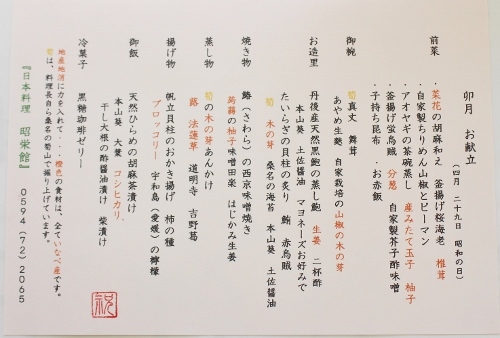 卯月　お献立
（四月　二十九日　昭和の日）
前菜
・菜花の胡麻和え　釜揚げ桜海老　椎茸
自家製ちりめん山椒とピーマン
・アオヤギの茶碗蒸し　産みたて玉子　柚子
・釜揚げ蛍烏賊　分葱　自家製芥子酢味噌
・子持ち昆布　・お赤飯
御椀
筍真丈　舞茸
あやめ生麩　自家栽培の山椒の木の芽
お造里
丹後産天然黒鮑の蒸し鮑　生姜　二杯酢
本山葵　土佐醤油　マヨネーズお好みで
たいらぎの貝柱の炙り　鮪　赤烏賊
筍　木の芽　桑名の海苔　本山葵　土佐醤油
焼き物
鰆（さわら）の西京味噌焼き
蒟蒻の柚子味噌田楽　はじかみ生姜
蒸し物
筍の木の芽あんかけ
蕗　法蓮草　道明寺　吉野葛
揚げ物
帆立貝柱のおかき揚げ　柿の種
ブロッコリー　宇和島（愛媛）の檸檬
御飯
天然ひらめの胡麻茶漬け
本山葵　大葉　コシヒカリ
干し大根の酢醤油漬け　柴漬け
冷菓子
黒糖珈琲ゼリー
地産地消に力を入れて・・・橙色の食材は、全ていなべ産です。
筍は、料理長自ら桑名の筍山で掘り上げています。
『日本料理　昭栄館』
0594（72）2065
祝